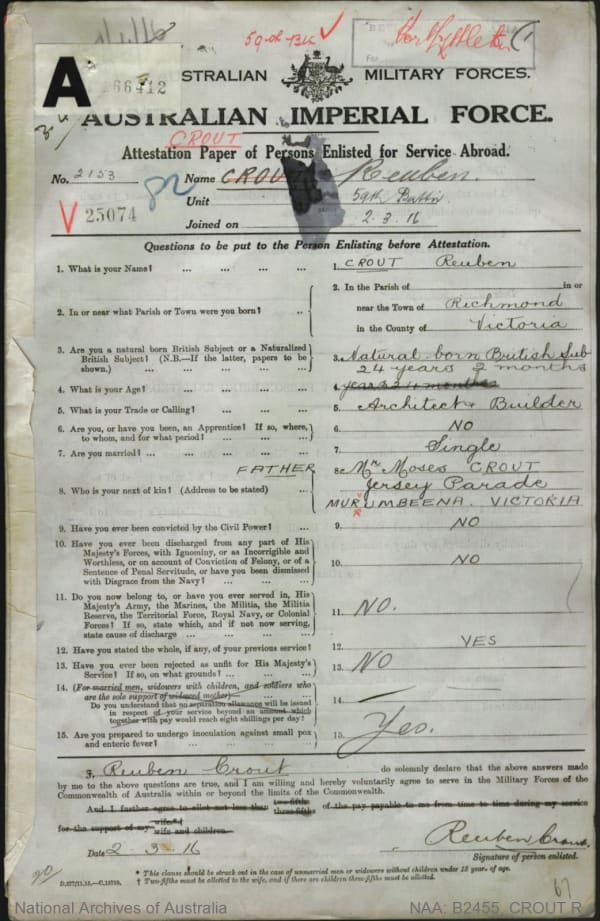 59th Btn
A
66412
AUSTRALIAN MILITARY FORCES.
AUSTRALIAN IMPERIAL FORCE.
CROUT
Attestation Paper of Persons Enlisted for Service Abroad.
No. 2153 Name CROUT Reuben.
Unit 59th Battn
V 25074
Joined on 2.3.16
Questions to be put to the Person Enlisting before Attestation.
1. What is your Name? ... ... ... ... 1. CROUT Reuben
2. In or near what Parish or Town were you born? .. 2. In the Parish of in or
near the Town of Richmond
in the County of Victoria
3. Are you a natural born British Subject or a Naturalized
British Subject? (N.B.—If the latter, papers to be
shown.) ... ... ... ... 3. Natural born British Sub
24 years 2 months
4. What is your Age? ... ... ... ... 4.
5. What is your Trade or Calling? ... ... ... 5 Architect & Builder
6. Are you, or have you been, an Apprentice? If so, where,
to whom, and for what period? ... ... ... 6. NO
7. Are you married? ... ... ... ... 7. Single
FATHER 8. Mr Moses CROUT
8. Who is your next of kin? (Address to be stated) ... Jersey Parade
MURRUMBEENA. VICTORIA
9. Have you ever been convicted by the Civil Power? ... 9. NO
10. Have you ever been discharged from any part of His
Majesty's Forces, with Ignominy, or as Incorrigible and
Worthless, or on account of Conviction of Felony, or of a
Sentence of Penal Servitude, or have you been dismissed
with Disgrace from the Navy? ... ... ... 10. NO
11. Do you now belong to, or have you ever served in, His
Majesty's Army, the Marines, the Militia, the Militia
Reserve, the Territorial Force, Royal Navy, or Colonial
Forces? If so, state which, and if not now serving,
state cause of discharge ... ... ... ... 11. NO.
12. Have you stated the whole, if any, of your previous service? 12. YES
13. Have you ever been rejected as unfit for His Majesty's
Service? If so, on what grounds? ... ... ... 13. NO
14. (For married men, widowers with children, and soldiers who
are the sole support of widowed mother)—
Do you understand that no separation allowance will be issued
in respect of your service beyond an amount which
together with pay would reach eight shillings per day? 14. —
15. Are you prepared to undergo inoculation against small pox
and enteric fever? ... ... ... ... 15. Yes.
I, Reuben Crout do solemnly declare that the above answers made
by me to the above questions are true, and I am willing and hereby voluntarily agree to serve in the Military Forces of the
Commonwealth of Australia within or beyond the limits of the Commonwealth.
And I further agree to allot not less than two-fifths three-fifths of the pay payable to me from time to time during my service
for the support of my wife*† wife and children.
Date 2-3-16 Reuben Crout
Signature of person enlisted.
* This clause should be struck out in the case of unmarried men or widowers without children under 18 years of age.
† Two-fifths must be allotted to the wife, and if there are children three-fifths must be allotted.
67
National Archives of Australia NAA: B2455, CROUT R